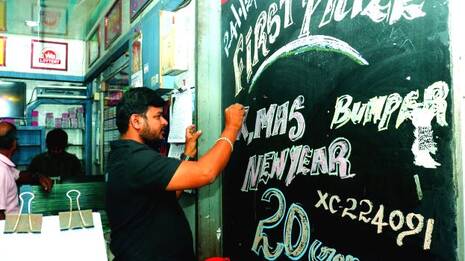 FIRST PRIZE
X,MAS BUMPER
NEW YEAR
XC-224091
20
LOTTERY